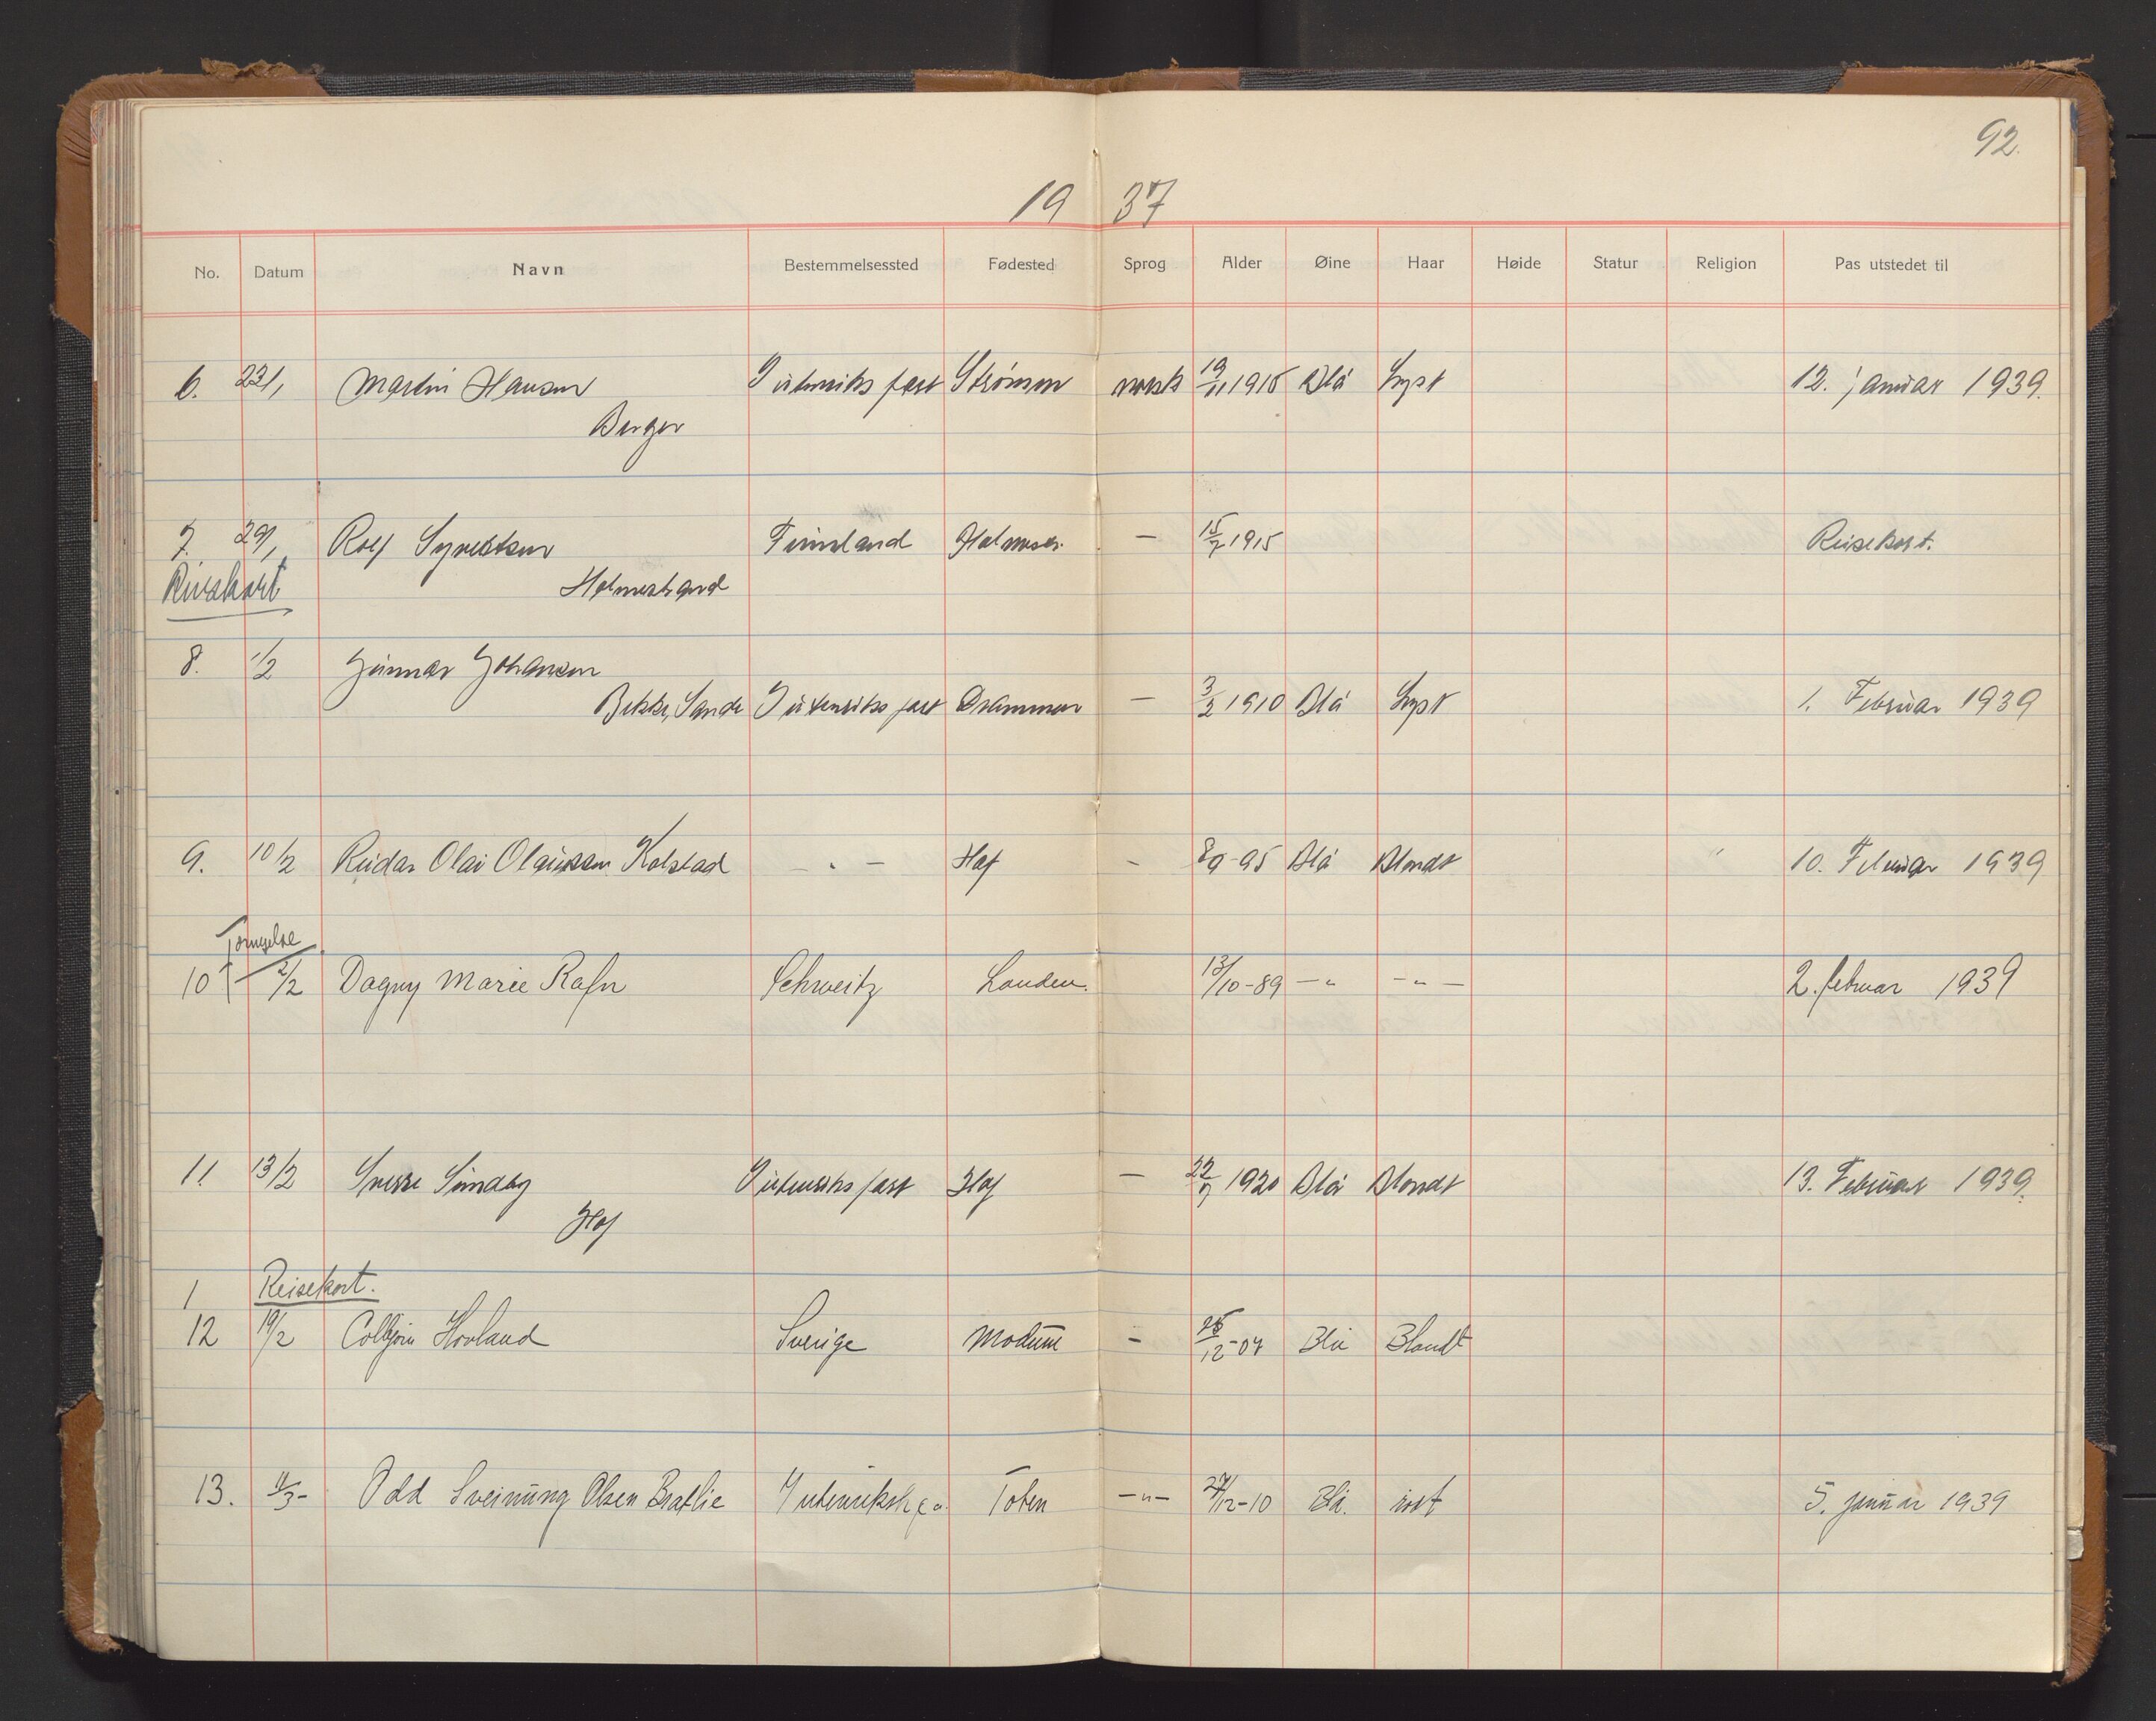 92.
19 37
No. Datum Navn Bestemmelsessted Fødested Sprog Alder Øine Haar Høide Statur Religion Pas utstedet til
6. 22/1 Martin Hansen I utenriks fart Strømm norsk 19/11 1915 Blå Lyst 12. januar 1939.
Berger
7. 29/1 Rolf Syvertsen Finnland Holmestr. — 15/7 1915 Reisekort.
Reisekort Holmestrand
8. 1/2 Gunnar Johansen
Bekke, Sande I utenriks fart Drammen — 3/2 1910 Blå Lyst 1. Februar 1939
9. 10/2 Reidar Olai Olaussen Kolstad — " — Hof - 8/9-95 Blå Blondt 10. Februar 1939
Fornyelse
10 2/2 Dagny Marie Rafn Schweitz Landen. 13/10-89 — " — " — 2. februar 1939
11. 13/2 Sverre Sundby I utenriks fart Hof — 22/9 1920 Blå Blondt 13. Februar 1939.
Hof
1 Reisekort.
12 19/2 Colbjørn Hovland Sverige Modum - 12-07 Blå Blondt
13. 11/3- Odd Sveinung Olsen Bratlie I utenriksk Toten —"— 27/12-10 Blå. 5. januar 1939